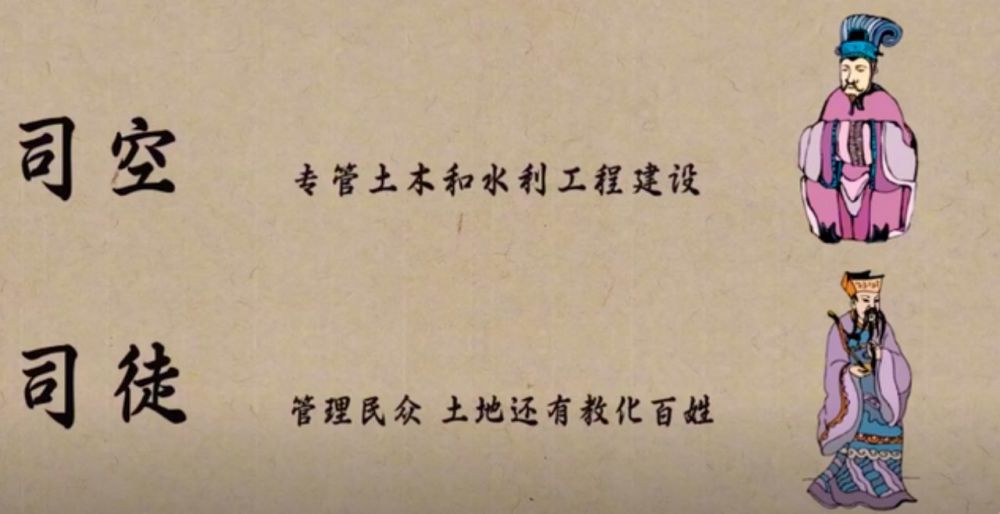 司空
专管土木和水利工程建设
司徒
管理民众 土地还有教化百姓